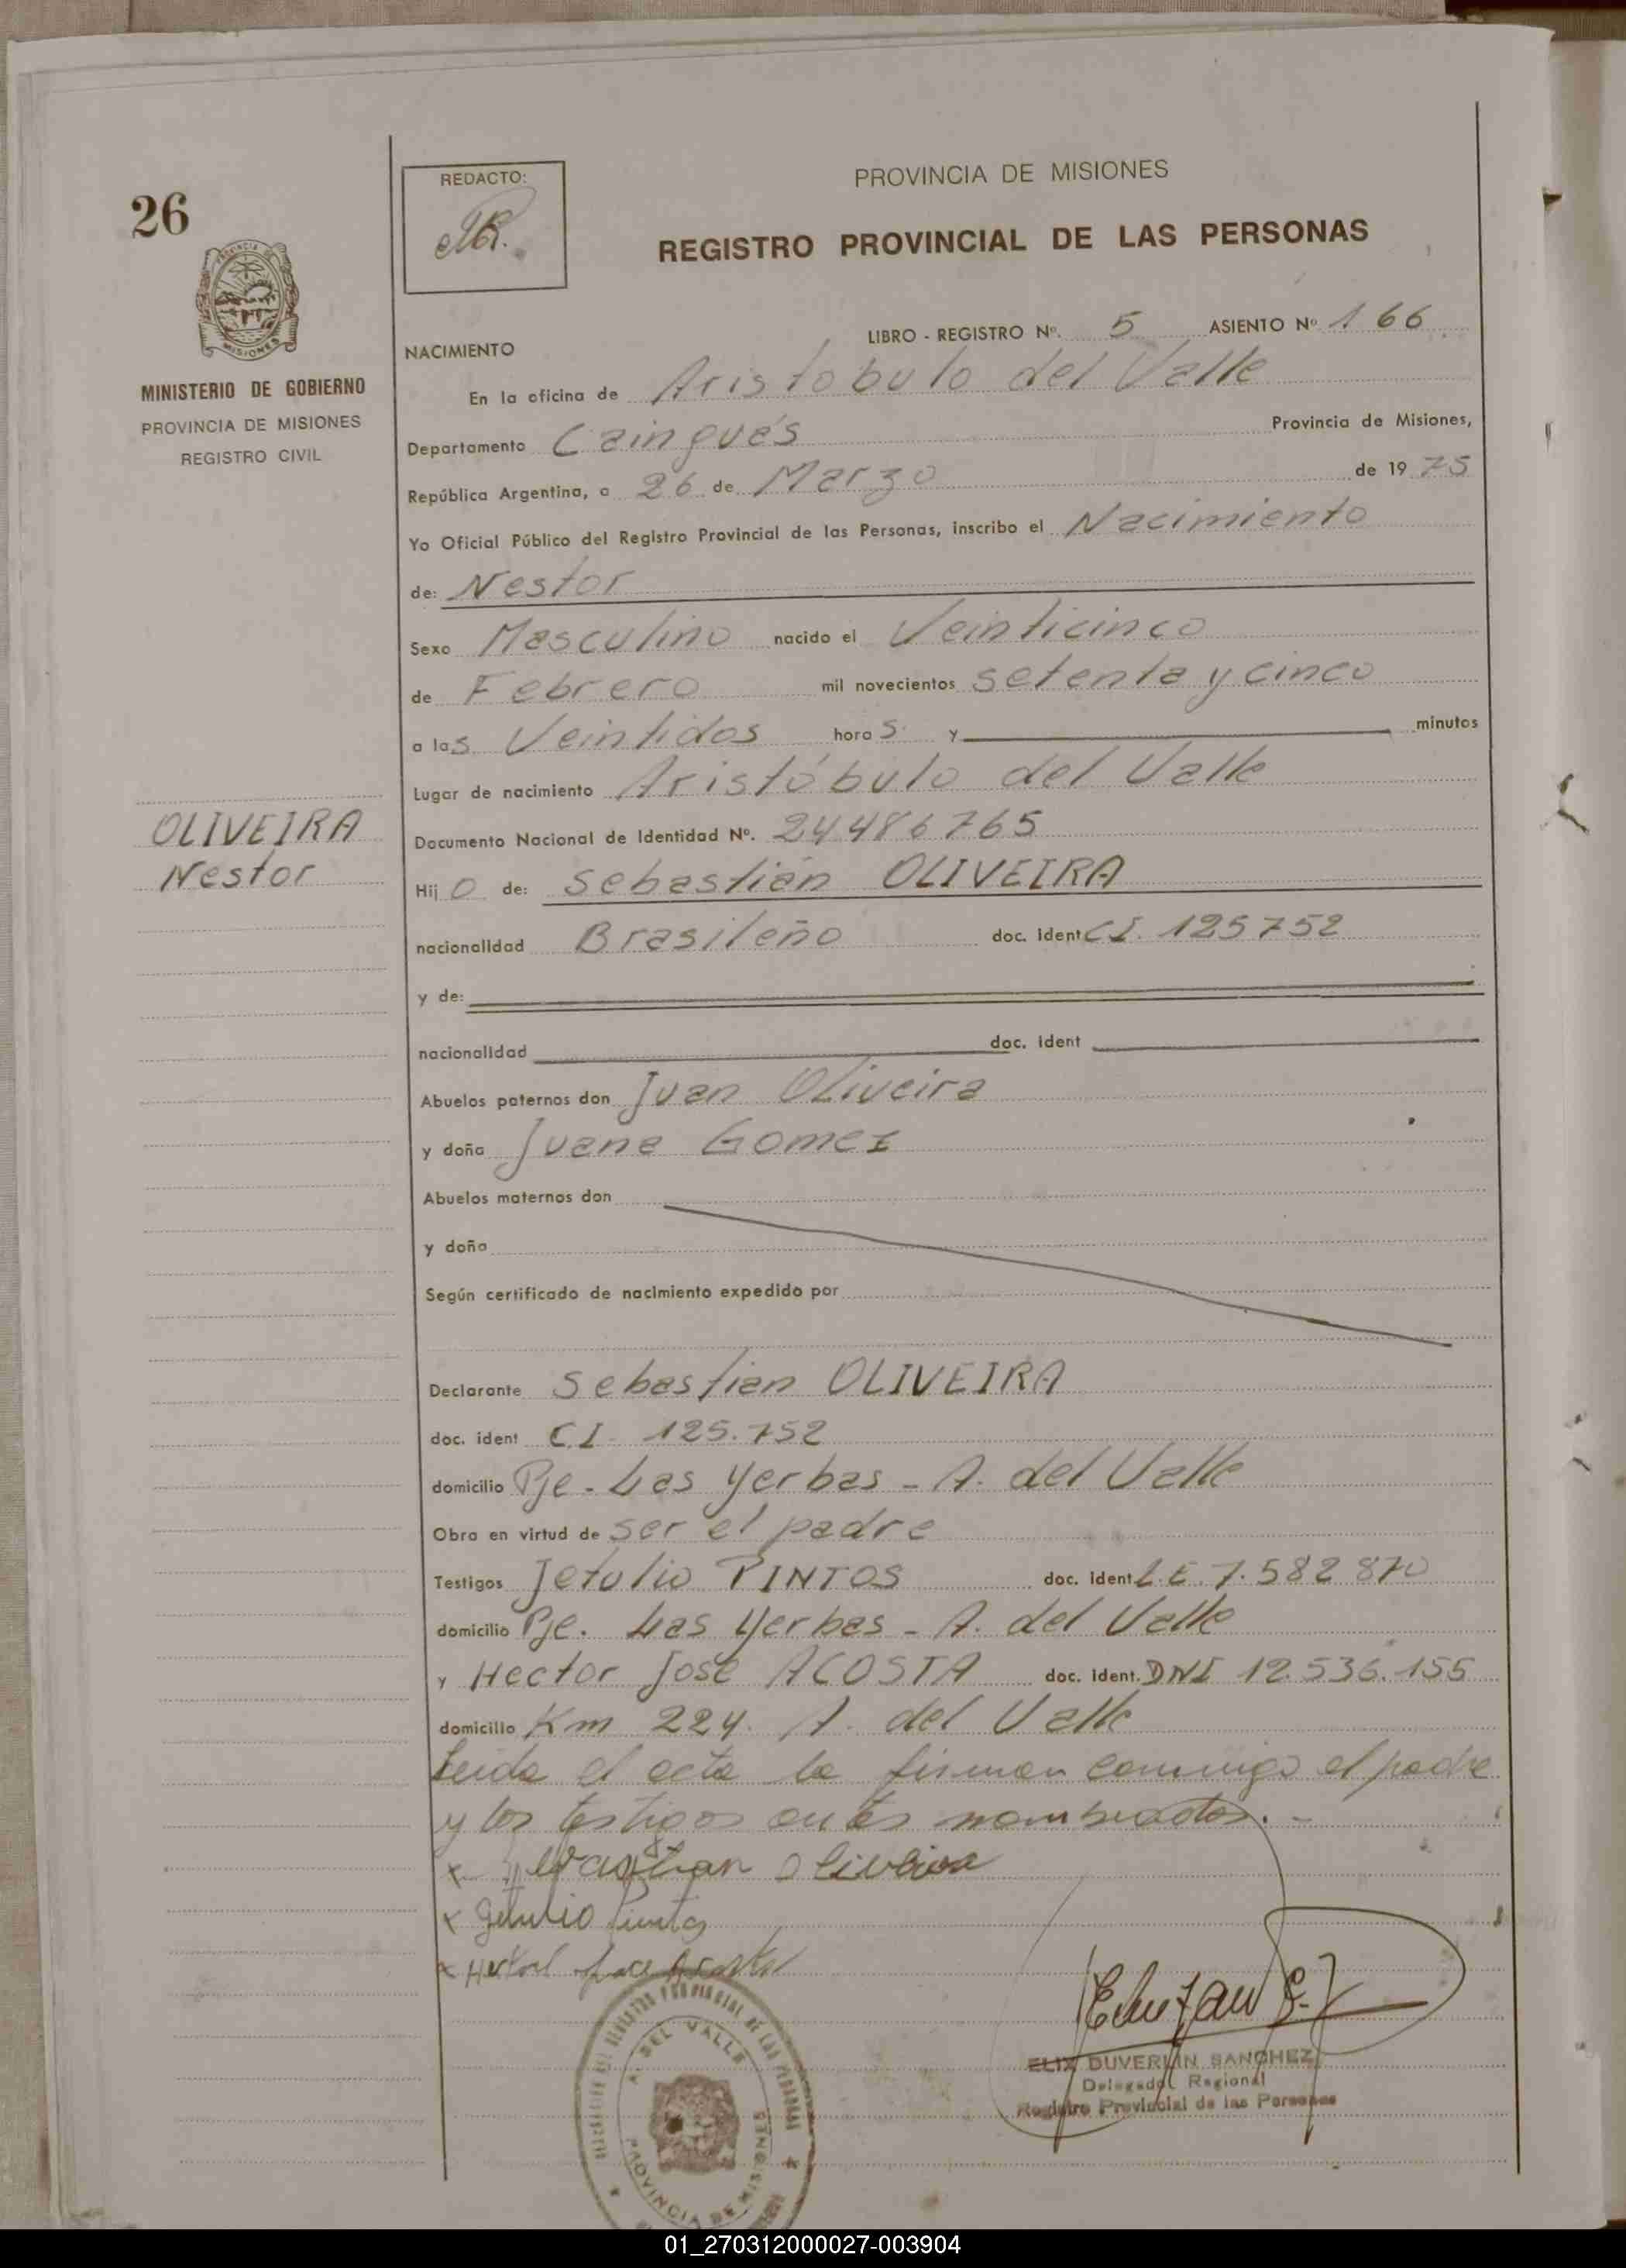 26
REDACTO:
PROVINCIA DE MISIONES
REGISTRO PROVINCIAL DE LAS PERSONAS
PROVINCIA
MISIONES
MINISTERIO DE GOBIERNO
PROVINCIA DE MISIONES
REGISTRO CIVIL
LIBRO - REGISTRO Nº. 5 ASIENTO Nº 166
NACIMIENTO
En la oficina de Aristobulo del Valle
Departamento Cainguás Provincia de Misiones,
República Argentina, a 26 de Marzo de 1975
Yo Oficial Público del Registro Provincial de las Personas, inscribo el Nacimiento
de: Nestor
Sexo Masculino nacido el Veinticinco
de Febrero mil novecientos setenta y cinco
a las Veintidos horas y minutos
Lugar de nacimiento Aristóbulo del Valle
Documento Nacional de Identidad Nº. 24486765
OLIVEIRA
Nestor
Hijo de: Sebastián OLIVEIRA
nacionalidad Brasileño doc. ident CI. 125752
y de:
nacionalidad doc. ident
Abuelos paternos don Juan Oliveira
y doña Juana Gomez
Abuelos maternos don
y doña
Según certificado de nacimiento expedido por
Declarante Sebastian OLIVEIRA
doc. ident C.I. 125.752
domicilio Pje. Las Yerbas - A. del Valle
Obra en virtud de ser el padre
Testigos Jetulio PINTOS doc. ident L.E. 7.582 870
domicilio Pje. Las Yerbas - A. del Valle
y Hector José ACOSTA doc. ident. DNI 12.536.155
domicilio Km 224. A. del Valle
Leida el acta la firman conmigo el padre
y los testigos antes nombrados. -
x Sebastian Oliveira
x Getulio Pintos
x Hector Jose Acosta
ELIX DUVERLIN SANCHEZ
Delegado Regional
Registro Provincial de las Personas
REGISTRO PROVINCIAL DE LAS PERSONAS
A. DEL VALLE
PROVINCIA DE MISIONES
01_270312000027-003904